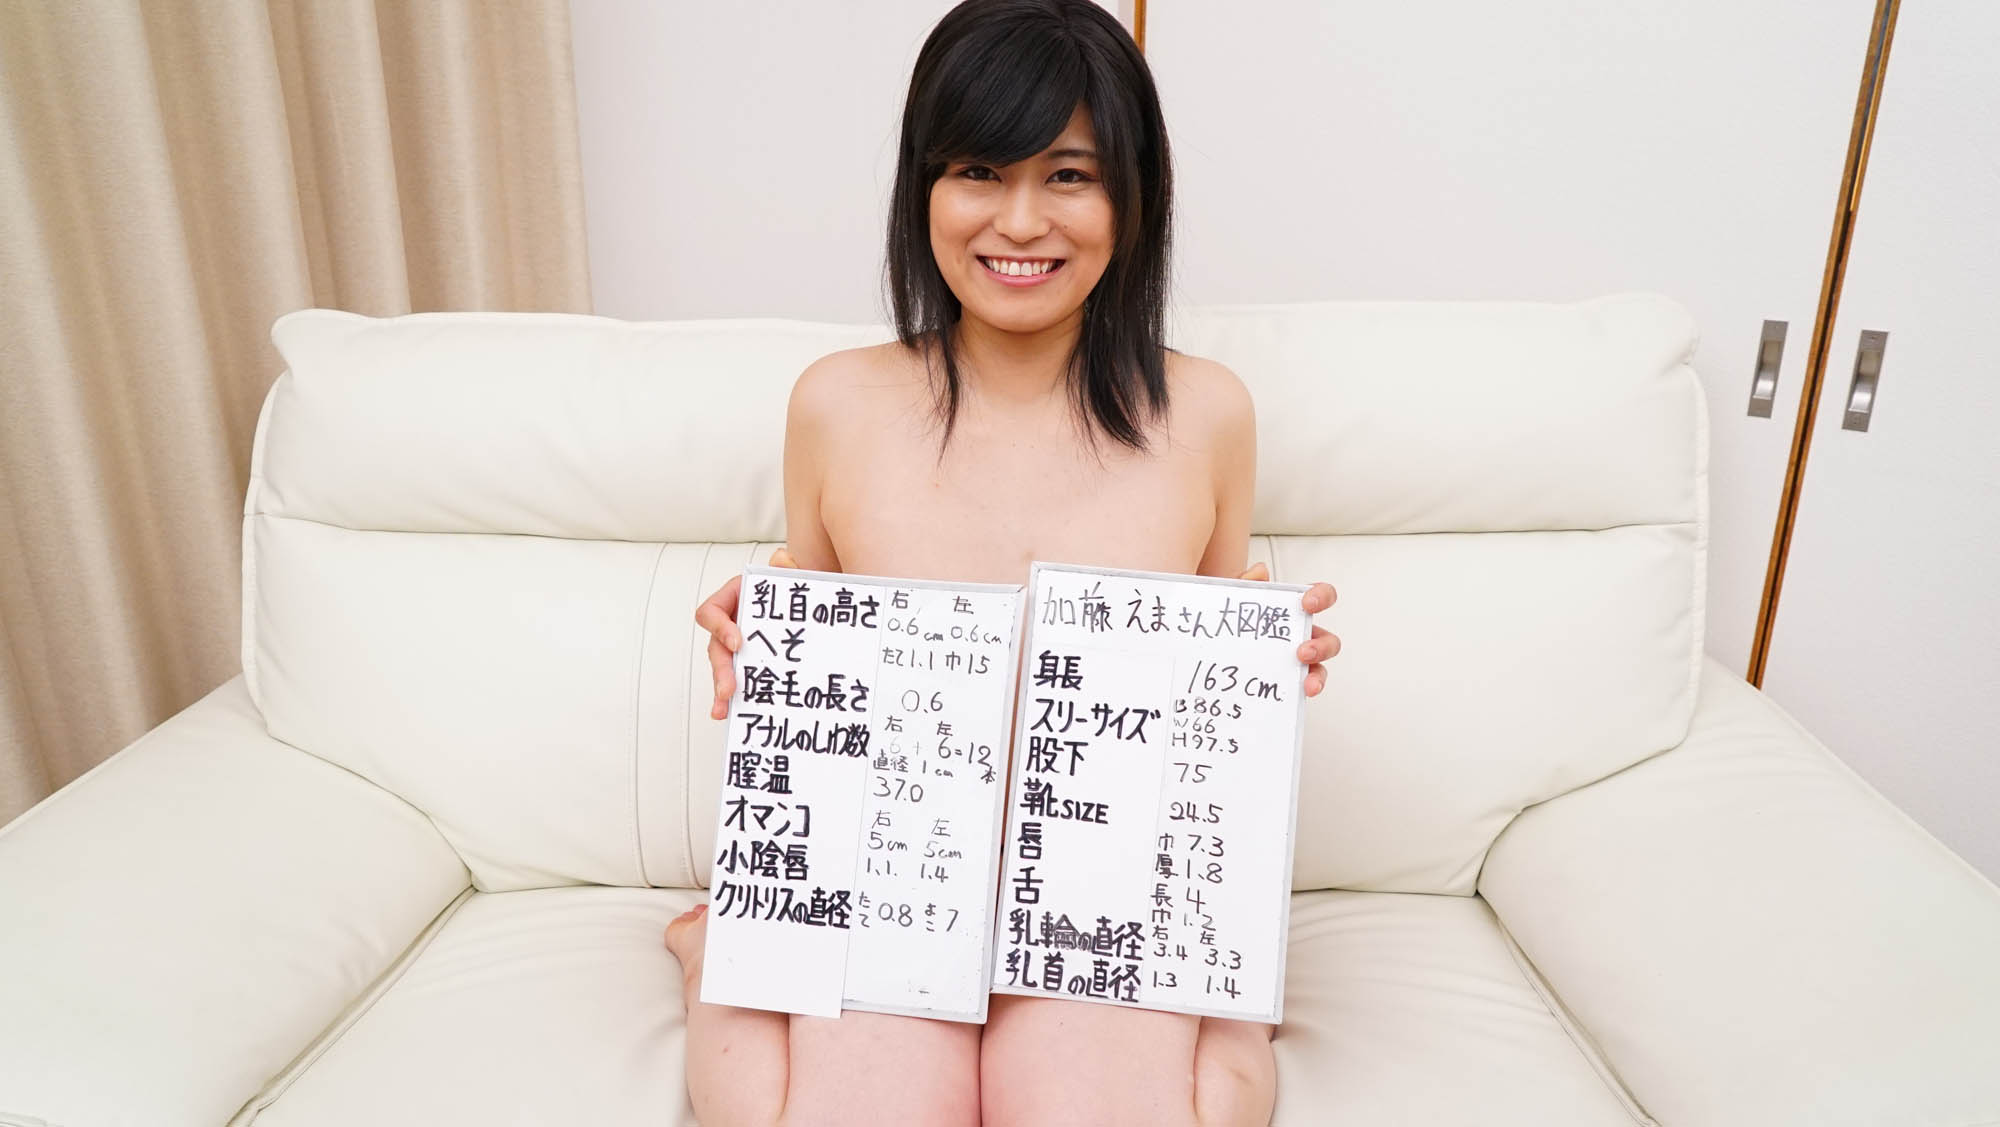 乳首の高さ 右 左
0.6cm 0.6cm
へそ たて1.1 巾15
陰毛の長さ 0.6
アナルのしわ数 右 左
6+6=12本
直径1cm
膣温 37.0
オマンコ 右 左
5cm 5cm
小陰唇 1.1. 1.4
クリトリスの直径 たて0.8 よこ7
加藤えまさん大図鑑
身長 163cm
スリーサイズ B86.5
W66
H97.5
股下 75
靴SIZE 24.5
唇 巾7.3
厚1.8
舌 長4
巾1.2
乳輪の直径 右 左
3.4 3.3
乳首の直径 1.3 1.4